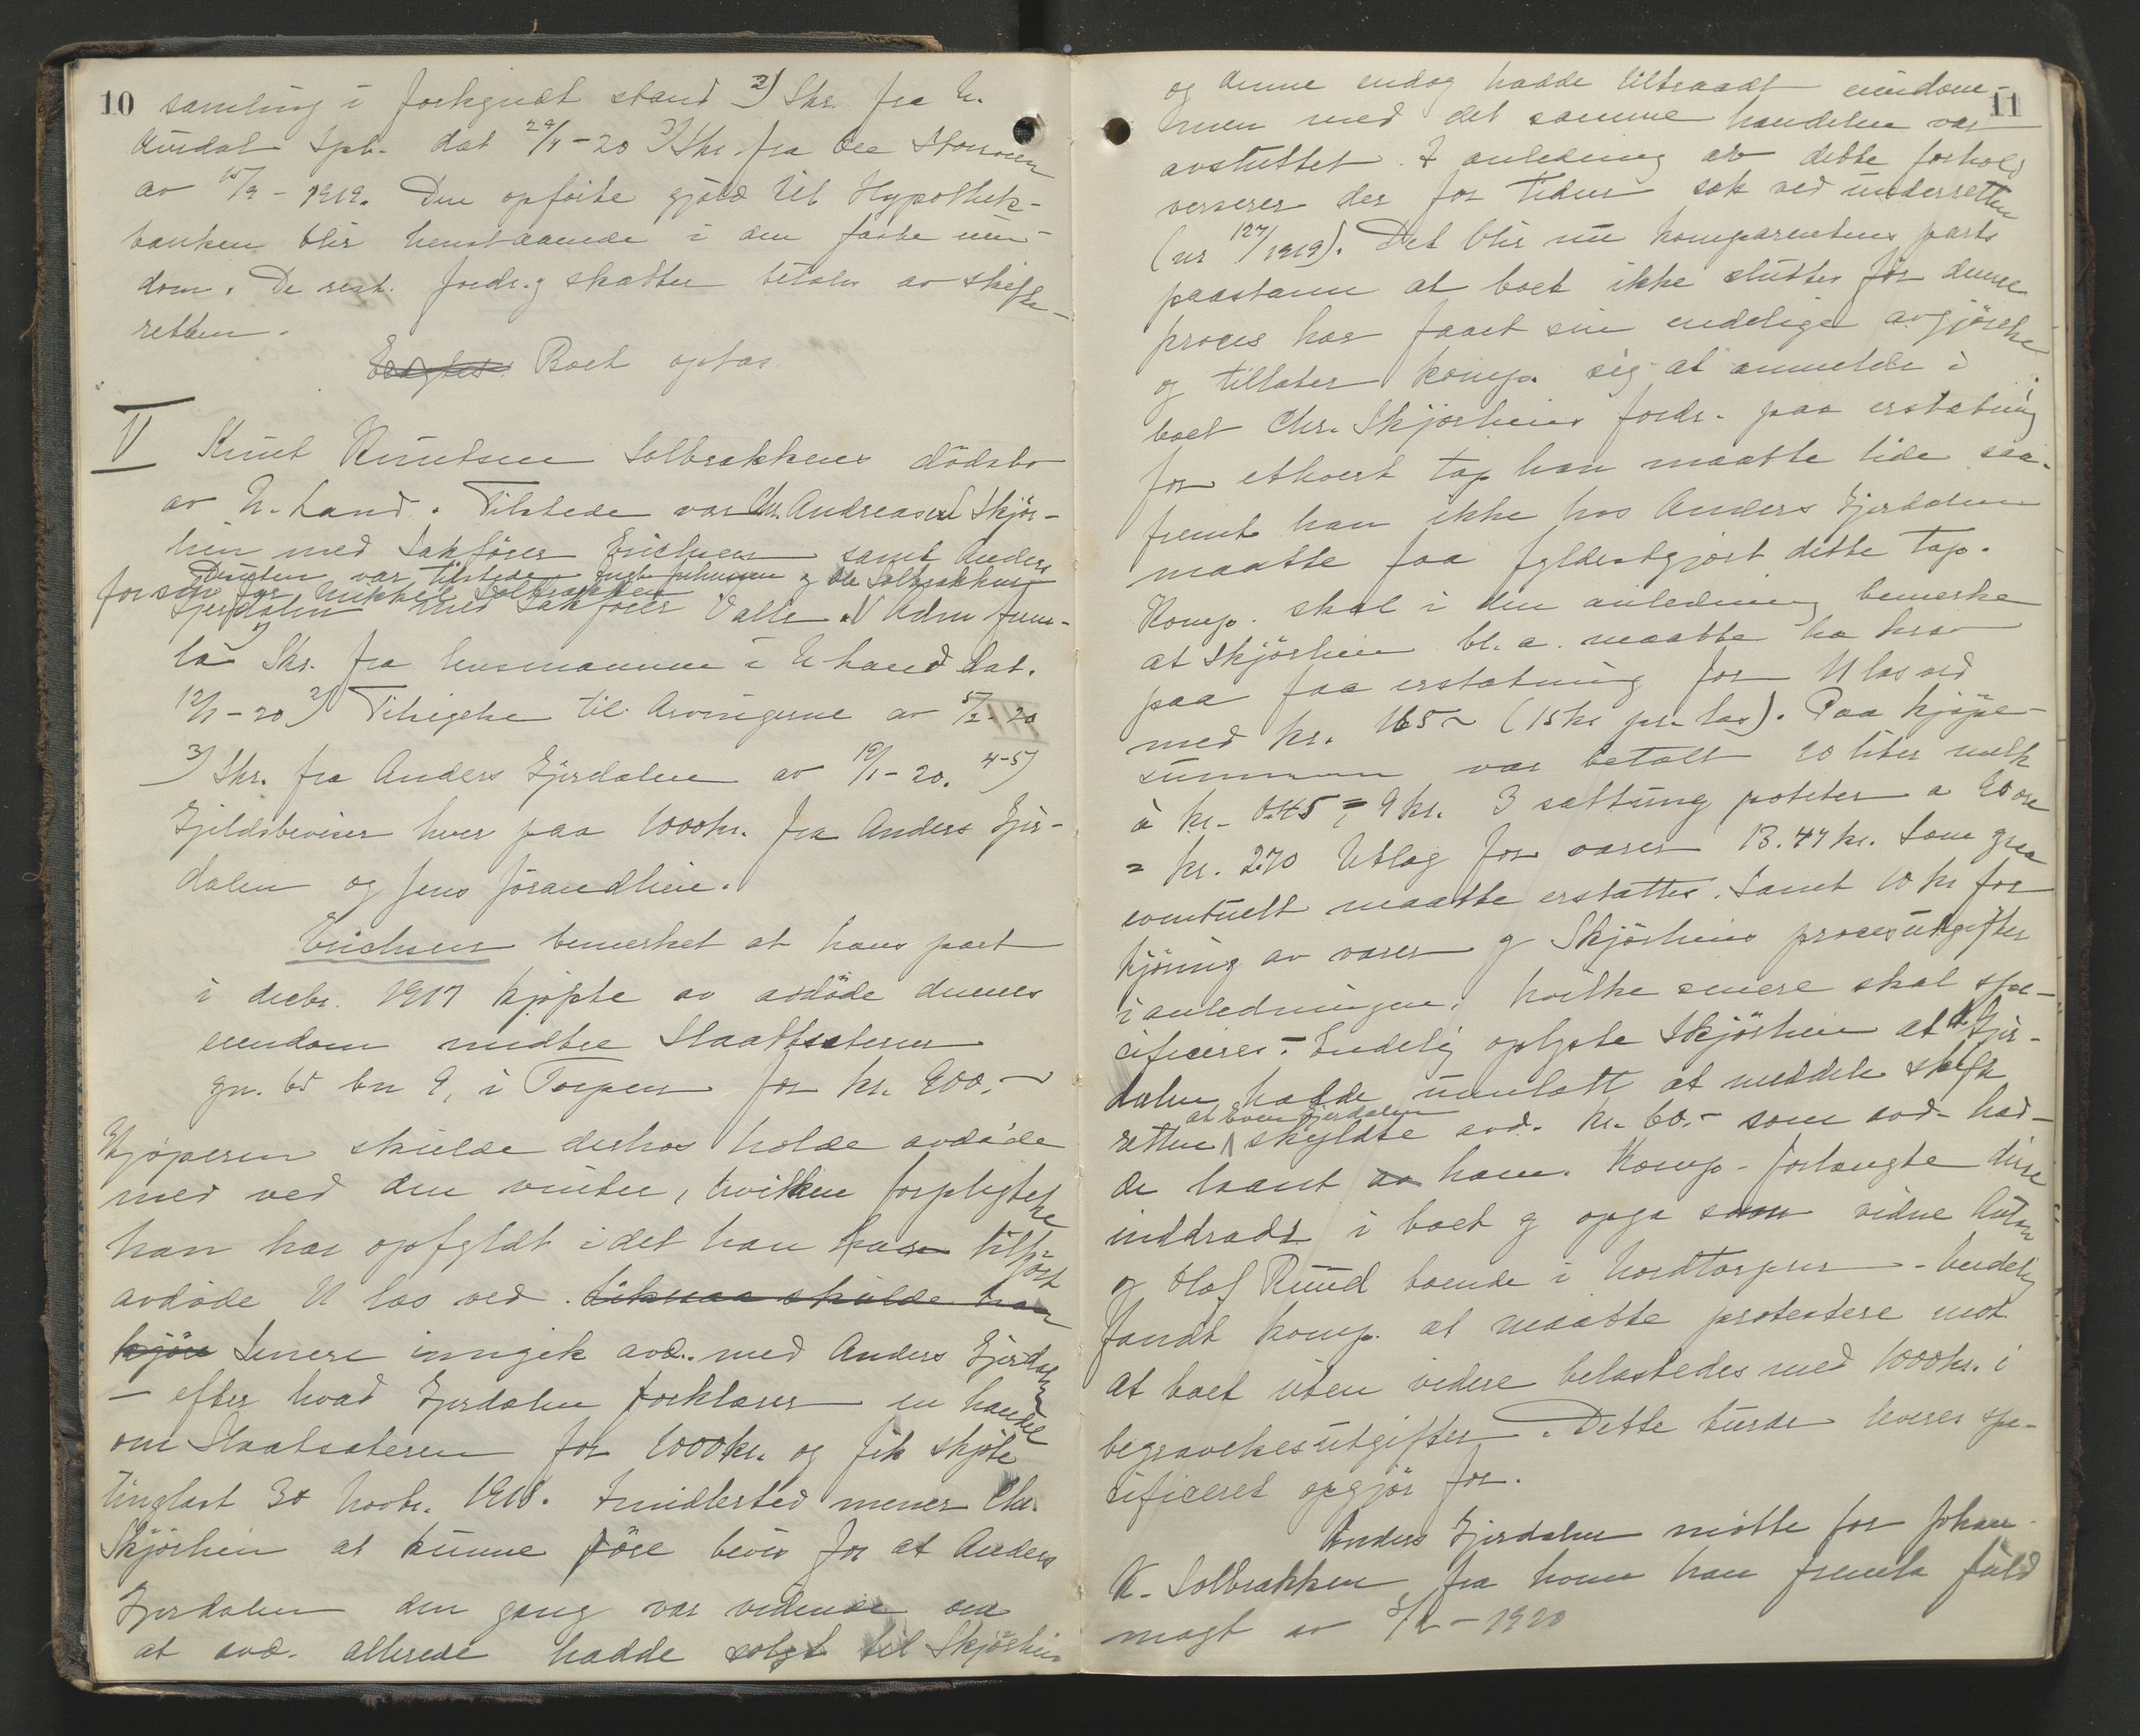 10
samling i forkynt stand 2) Skr. fra N.
Aurdal Spb. dat 24/4-20 3) Skr. fra Ole
av 15/9-1919. Den opførte gjæld til Hypothek-
banken blir henstaaende i den faste eien-
dom. De rest. fordr. og skatter betales av skifte-
retten.
Boet optas.
V
Knut Knutsen Solbrækkens dødsbo
av N. Land. Tilstede var Chr. Andreasen Skjør-
hein med Sakfører Erichsen samt Anders
Desuten var tilstede Ingb. Johnsen og Ole Solbrækken
for sin far Mikkel Solbrækken
Gjerdalen med Sakfører Valle. Adm frem-
la 1) Skr. fra lensmannen i N Land dat.
12/1-20 2) Tilsigelse til Arvingerne av 5/2-20
3) Skr. fra Anders Gjerdalen av 19/1-20. 4-5)
Gjeldsbeviser hver paa 1000 kr. fra Anders Gjer-
dalen og Jens Jørandlien.
Erichsen bemerket at hans part
i decbr. 1917 kjøpte av avdøde dennes
eiendom midtre Slaattsæteren
gn. 60 bn 9, i Torpen for kr. 900.-
Kjøperen skulde derhos holde avdøde
med ved den vinter, hvilken forpligtelse
han har opfyldt idet han har tilkjørt
avdøde 11 las ved. Likesaa skulde han
kjøre Senere inngik avd. med Anders Gjerdalen
- efter hvad Gjerdalen forklarer en handel
om Slaatsæteren for 1000 kr. og fik skjøte
tinglæst 30 Novbr. 1918. Imidlertid mener Chr.
Skjørhein at kunne føre bevis for at Anders
Gjerdalen den gang var vidende om
at avd. allerede hadde solgt til Skjørhein
11
og denne endog hadde tiltraadt eiendom-
men med det samme handelen var
avsluttet. I anledning av dette forhold
verserer der for tiden sak ved underretten
(nr 127/1919). Det blir nu komparentens parts
paastann at boet ikke sluttes før denne
proces har faaet sin endelige avgjørelse
og tillater komp. sig at anmelde i
boet Chr. Skjørheins fordr. paa erstatning
for ethvert tap han maatte lide saa-
fremt han ikke hos Anders Gjerdalen
maatte faa fyldestgjort dette tap.
Komp. skal i den anledning bemerke
at Skjørhein bl. a. maatte ha krav
paa faa erstatning for 11 las ved
med kr. 165 - (15 kr pr. las). Paa kjøpe-
summen var betalt 20 liter melk
à kr. 0.45 = 9 kr. 3 sætting poteter a 90 øre
= kr. 2.70 Utlæg for varer 13.47 kr. som
eventuelt maatte erstattes. Samt 10 kr for
kjøring av varer og Skjørheins procesutgifter
i anledningen, hvilke senere skal spe-
cificeres.- Endelig oplyste Skjørhein at A. Gjer-
dalen hadde unnlatt at meddele skifte
retten at Even Gjerdalen skyldte avd. kr. 60.- som avd. had-
de laant ham. Komp. forlangte disse
inddradd i boet og opga som vidne Anton
og Olaf Ruud boende i Nordtorpen. - Endelig
fandt komp. at maatte protestere mot
at boet uten videre belastedes med 1000 kr. i
begravelsesutgifter. Dette burde leveres spe-
cificeret opgjør for.
Anders Gjerdalen møtte for Johan
K. Solbrækken fra hvem han fremla fuld
magt av 3/2-1920